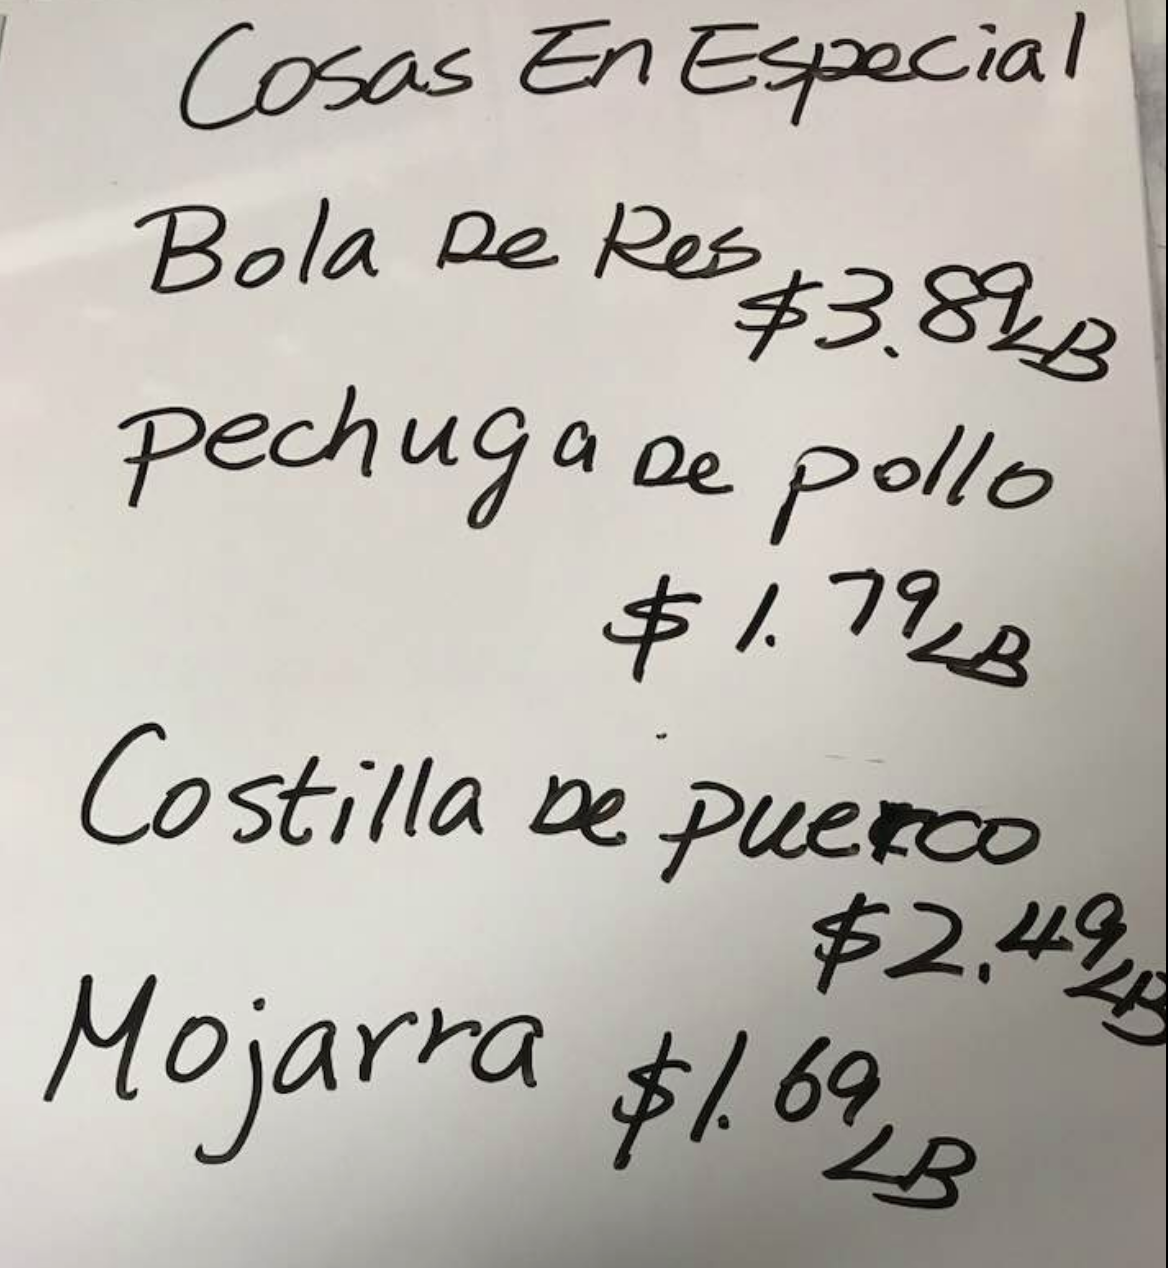 Cosas En Especial
Bola De Res
$3.89 LB
Pechuga De pollo
$1.79 LB
Costilla De puerco
$2.49 LB
Mojarra $1.69
LB